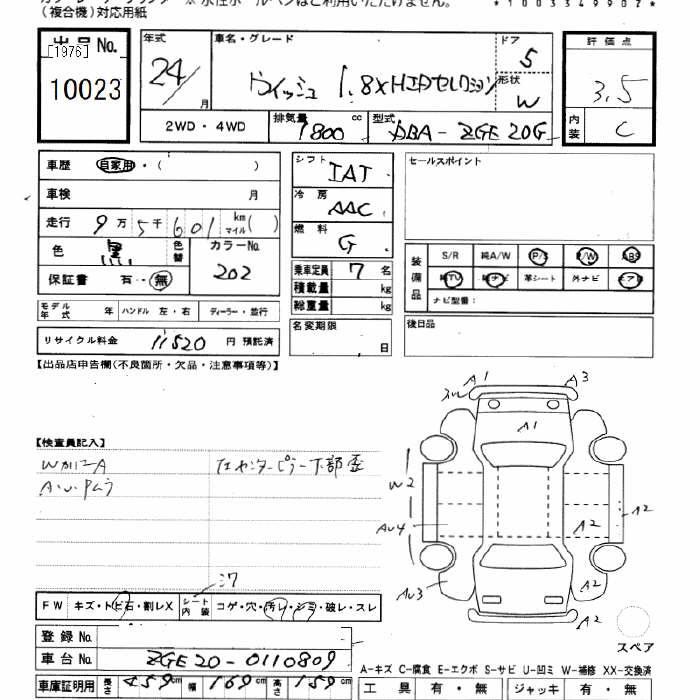 (複合機)対応用紙
*1003349907*
出品No.
[1976]
10023
年式 24/ 月
車名・グレード
ウィッシュ 1.8X HIDセレクション
ドア 5
形状 W
評価点
3.5
内装 C
2WD・4WD
排気量 1800 cc
型式 DBA-ZGE20G
車歴 自家用・( )
車検 月
走行 9万5千601 km マイル( )
色 黒 色替 カラーNo. 202
保証書 有・無
モデル年式 年 ハンドル 左・右 ディーラー・並行
リサイクル料金 11520 円 預託済
シフト IAT
冷房 AAC
燃料 G
乗車定員 7 名
積載量 kg
総重量 kg
名変期限 日
セールスポイント
装備品
S/R 純A/W P/S P/W ABS
純TV 純ナビ 革シート 外ナビ エアB
ナビ型番:
後日品
【出品店申告欄(不良箇所・欠品・注意事項等)】
【検査員記入】
WカバーA
A・U・Pムラ
左センターピラー下部歪
A1
A3
A1
W2
AU4
AU3
A2
A2
A2
A2
スペア
FW キズ・トビ石・割レX
シート内装 コゲ・穴・汚レ・シミ・破レ・スレ
登録No.
車台No. ZGE20-0110809
車庫証明用 長さ 459 cm 幅 169 cm 高さ 159 cm
A-キズ C-腐食 E-エクボ S-サビ U-凹ミ W-補修 XX-交換済
工具 有・無 ジャッキ 有・無